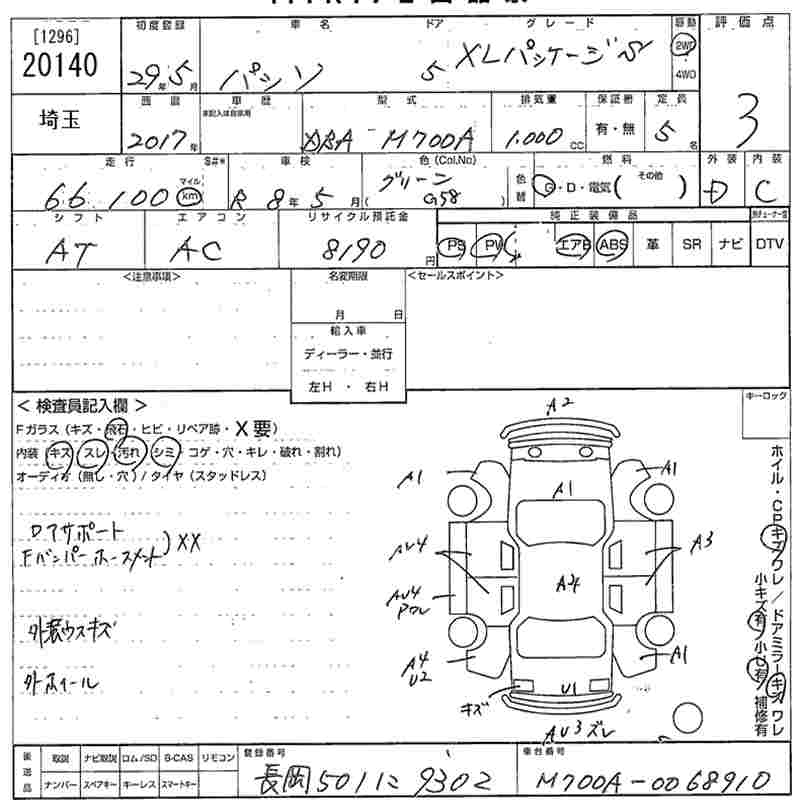 [1296]
20140
初度登録 車名 ドア グレード 駆動 評価点
29年5月 パッソ 5 XLパッケージS 2WD
4WD
3
埼玉
西暦 車歴 型式 排気量 保証書 定員
未記入は自家用
2017年 DBA M700A 1.000cc 有・無 5名
走行 S#* 車検 色(Col,No) 燃料 外装 内装
66,100 マイル km R8年5月 グリーン( G58 ) 色替 G・D・電気( その他 ) D C
シフト エアコン リサイクル預託金 純正装備品
AT AC 8190円 PS PW エアB ABS 革 SR ナビ DTV
<注意事項> 名変期限 <セールスポイント>
月 日
輸入車
ディーラー・並行
左H ・ 右H
< 検査員記入欄 >
Fガラス(キズ・飛石・ヒビ・リペア跡・X要)
内装(キズ・スレ・汚れ・シミ・コゲ・穴・キレ・破れ・割れ)
オーディオ(無し・穴)/タイヤ(スタッドレス)
キーロック
Dアサポート
Fバンパーホースメント )XX
外装ウスキズ
外ホイール
A2
A1 A1 A1
AU4 A3
A4
AU4
Pワレ
A4
U2
A1
キズ U1
AU3ズレ
ホイル・CPキズワレ/ドアミラーキズワレ
小キズ有 小U有 補修有
後送品 取説 ナビ取説 ロム/SD B-CAS リモコン 登録番号 車台番号
ナンバー スペアキー キーレス スマートキー 長岡501に9302 M700A-0068910